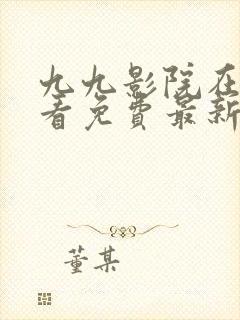 九九影院在
看免费最新
董某